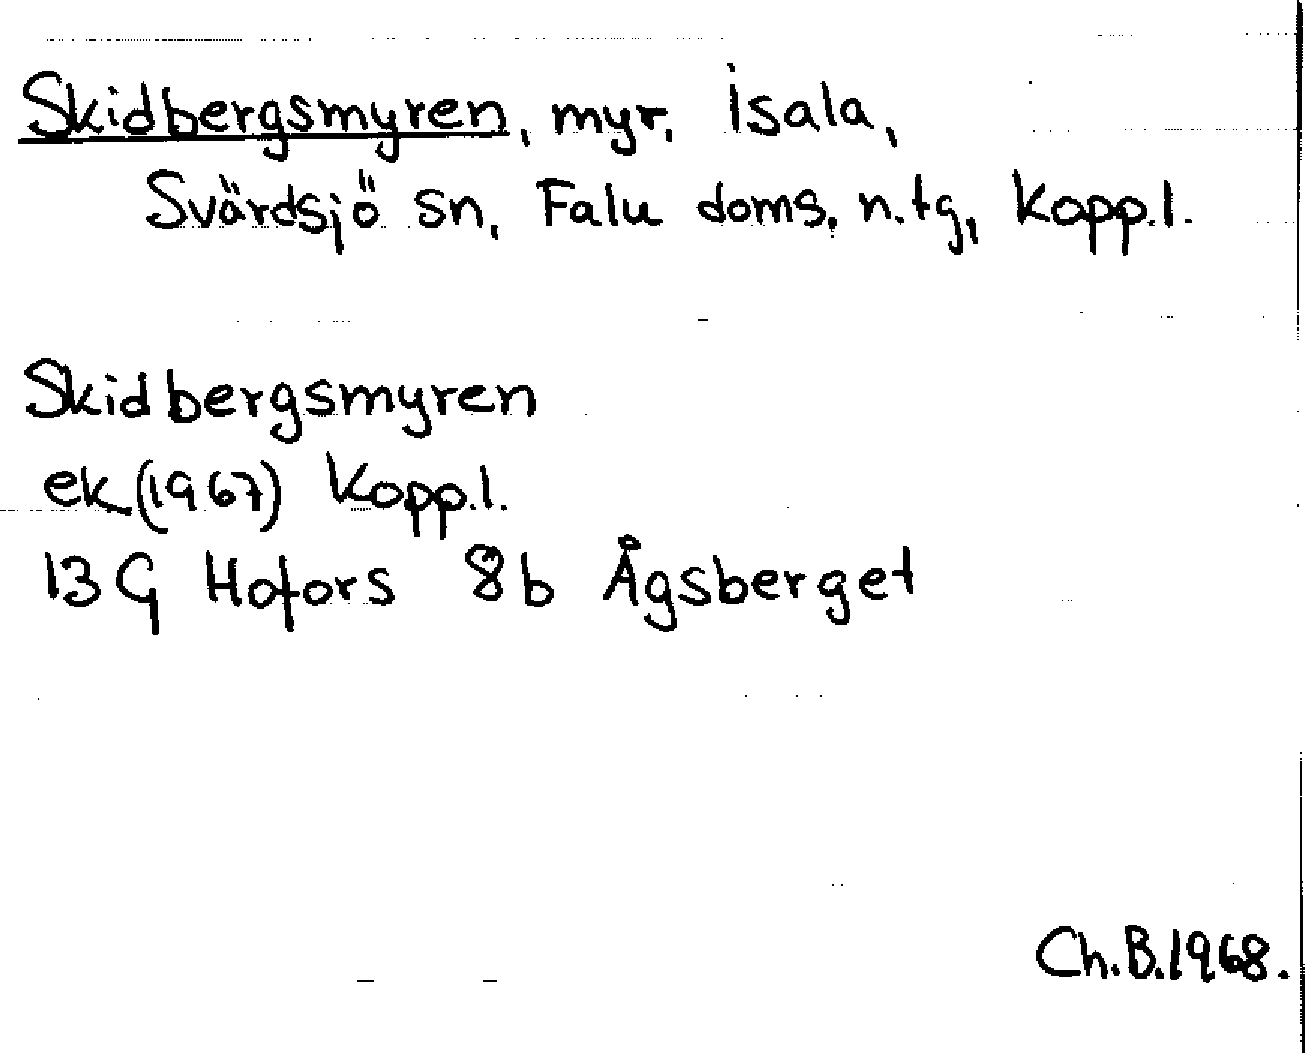 Skidbergsmyren, myr, Isala,
Svärdsjö sn, Falu doms. n. tg, Kopp.l.
Skidbergsmyren
ek (1967) Kopp.l.
13G Hofors 8b Ågsberget
Ch.B.1968.